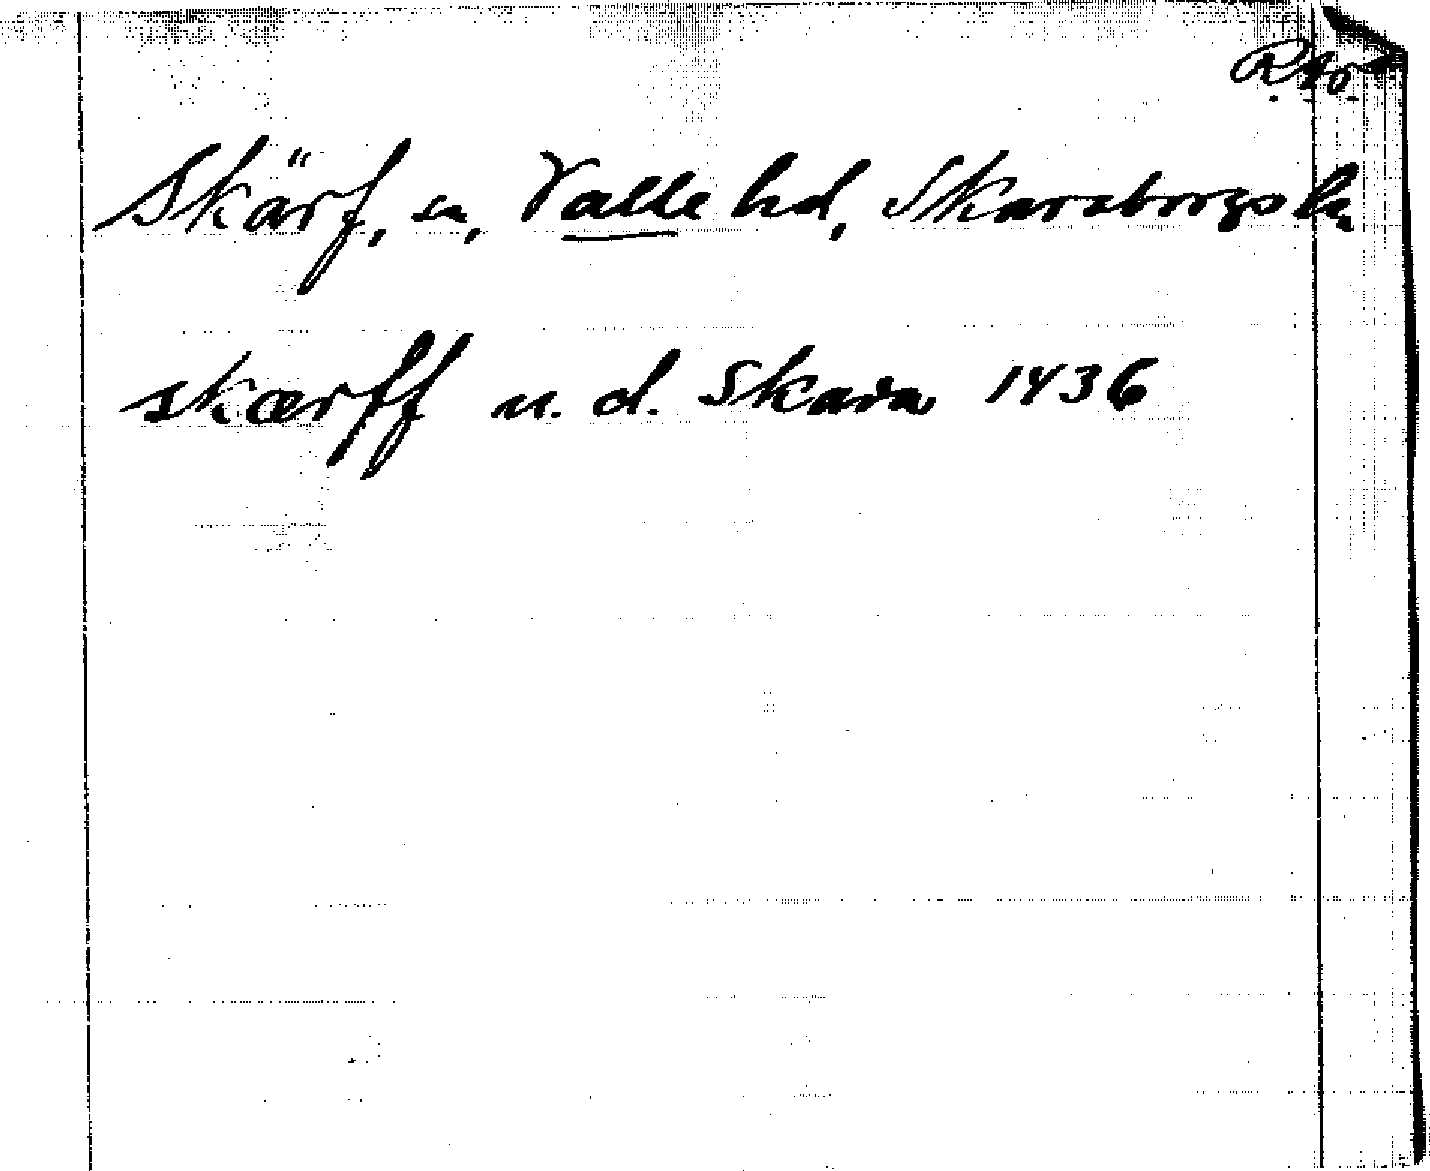 Skärf, sn, Valle hd, Skaraborgs ln
skærff u. d. Skara 1436